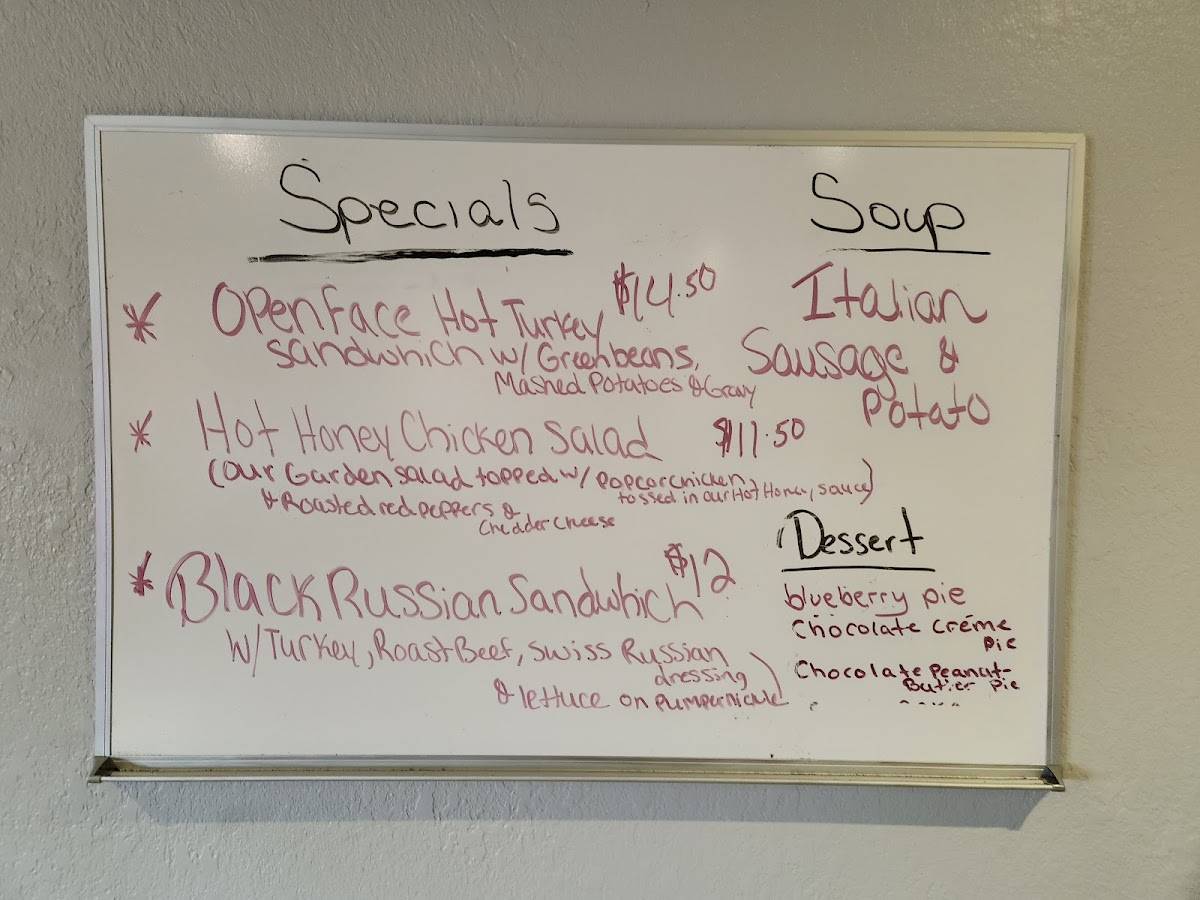 Specials
* Open Face Hot Turkey $14.50
Sandwhich w/ Greenbeans,
Mashed Potatoes & Gravy
* Hot Honey Chicken Salad $11.50
(our Garden salad topped w/ popcorchicken
tossed in our Hot Honey, sauce)
& Roasted red peppers &
Chedder Cheese
* Black Russian Sandwhich $12
w/ Turkey, Roast Beef, swiss Russian
dressing
& lettuce on pumpernickle)
Soup
Italian
Sausage &
Potato
Dessert
blueberry pie
Chocolate Créme
Pie
Chocolate Peanut-
Butter Pie